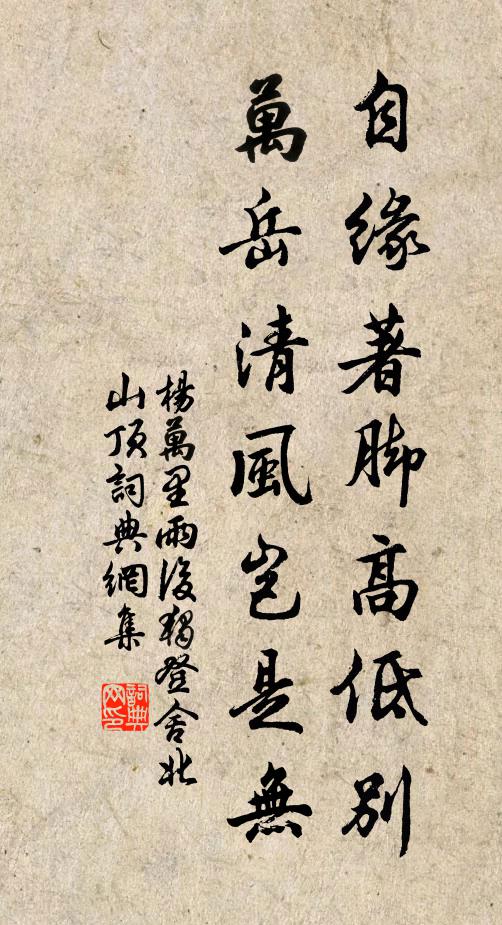 自緣著脚高低別
萬岳清風豈是無
楊萬里雨後獨登舍北
山頂詞典網集
詞典
网印